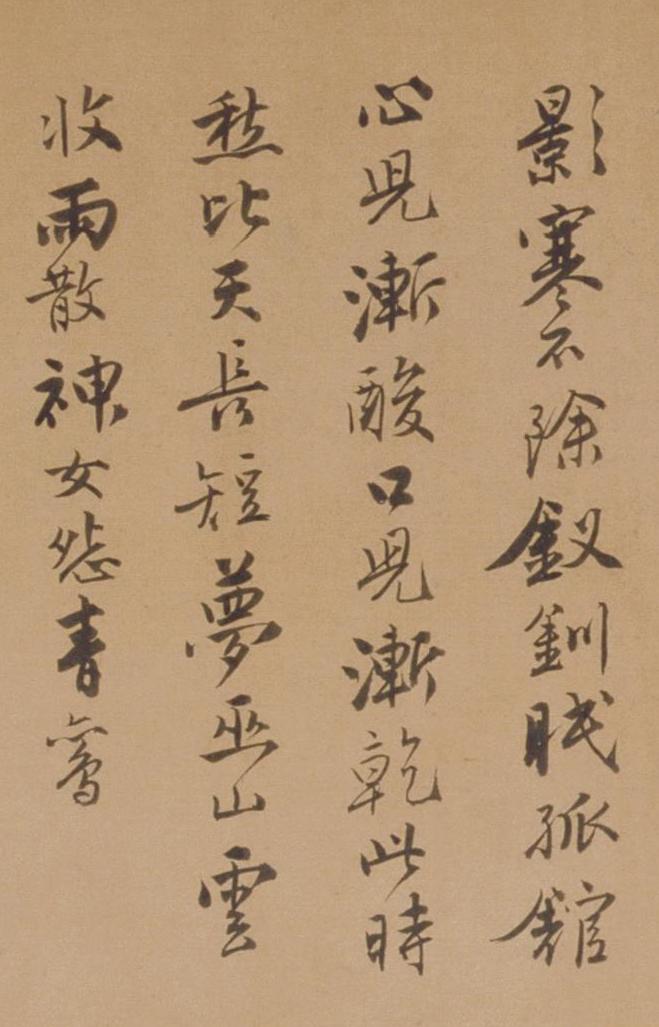 影寒不除釵釧眠孤舘
心兒漸酸口兒漸乾此時
愁比天長短夢巫山雲
收雨散神女愁青鸞